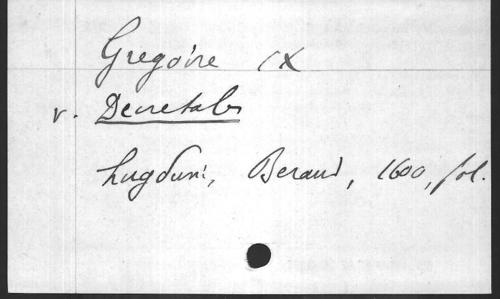 Grégoire IX
v. Decretales
Lugduni, Beraud, 1600, fol.